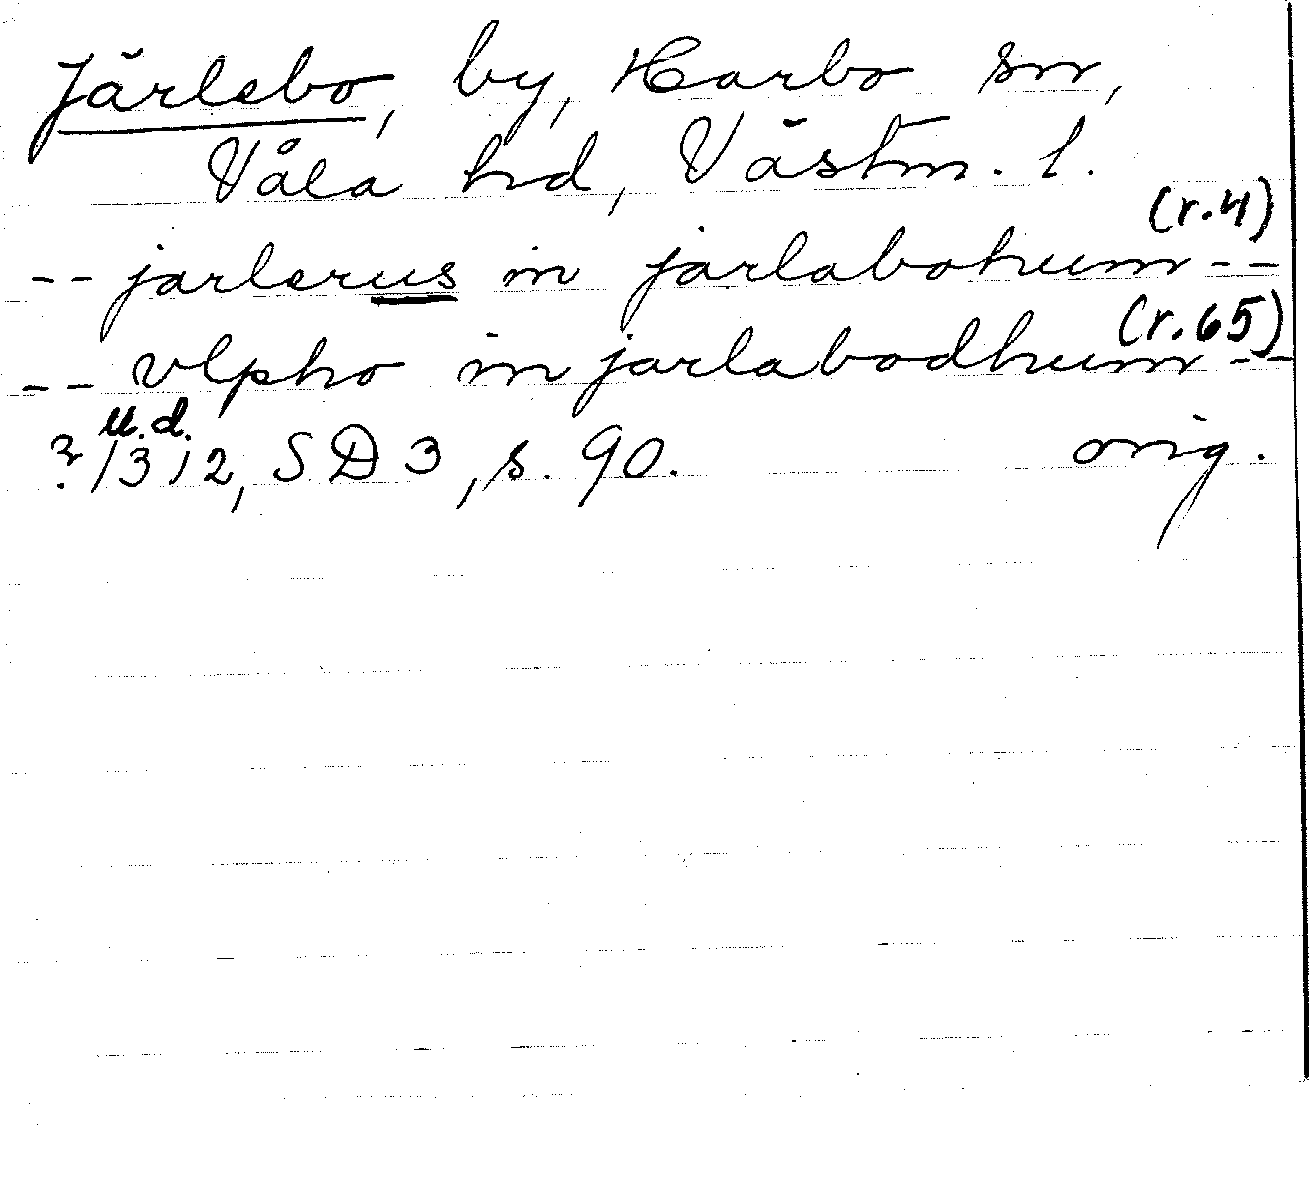 Järlebo, by, Harbo sn,
Våla hd, Västm. l.
(r.4)
-- jarlerus in jarlabohum --
(r.65)
-- vlpho in jarlabodhum --
u.d.
? 1312, SD 3, s. 90. orig.